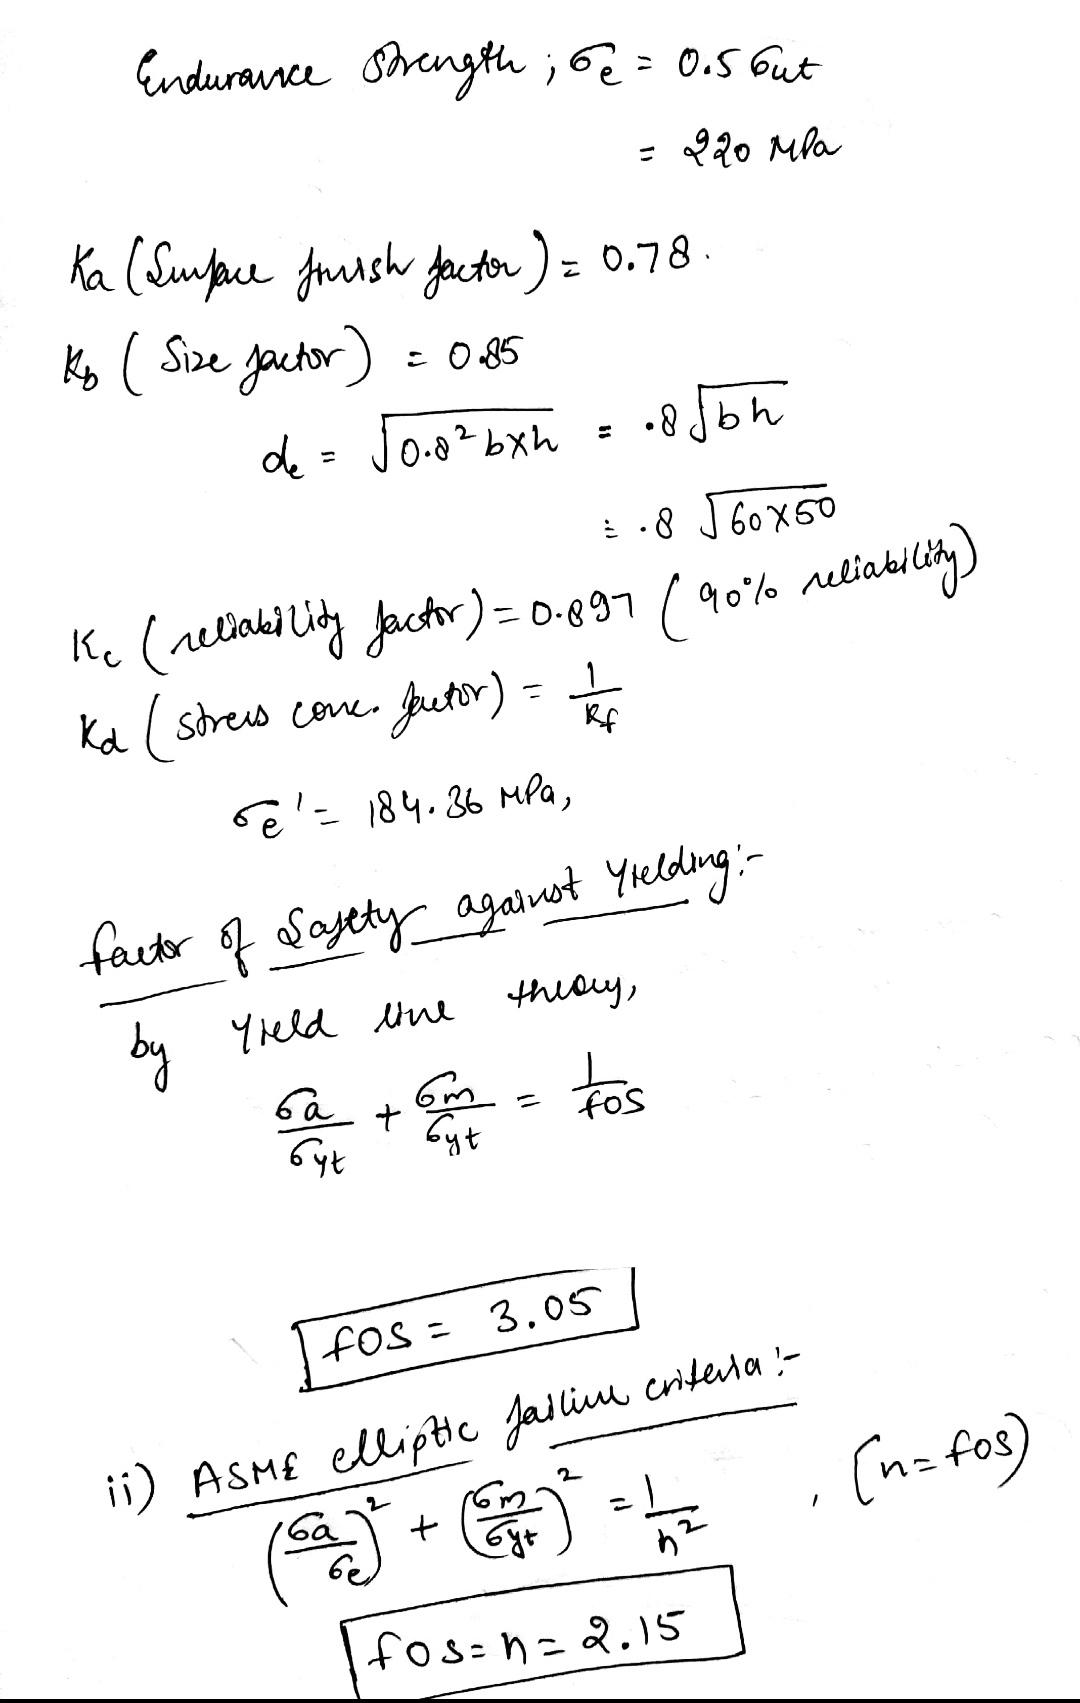 Endurance Strength ; σe = 0.5 σut
= 220 MPa
Ka (Surface finish factor) = 0.78.
Kb ( Size factor) = 0.85
de = √0.8² b×h = .8 √bh
= .8 √60×50
Kc (reliability factor) = 0.897 ( 90% reliability)
Kd ( stress conc. factor) = 1/Kf
σe' = 184.36 MPa,
factor of Safety against Yielding :-
by Yield line theory,
σa/σyt + σm/σyt = 1/fos
fos = 3.05
ii) ASME elliptic failure criteria :-
(σa/σe)² + (σm/σyt)² = 1/n² , (n = fos)
fos = n = 2.15